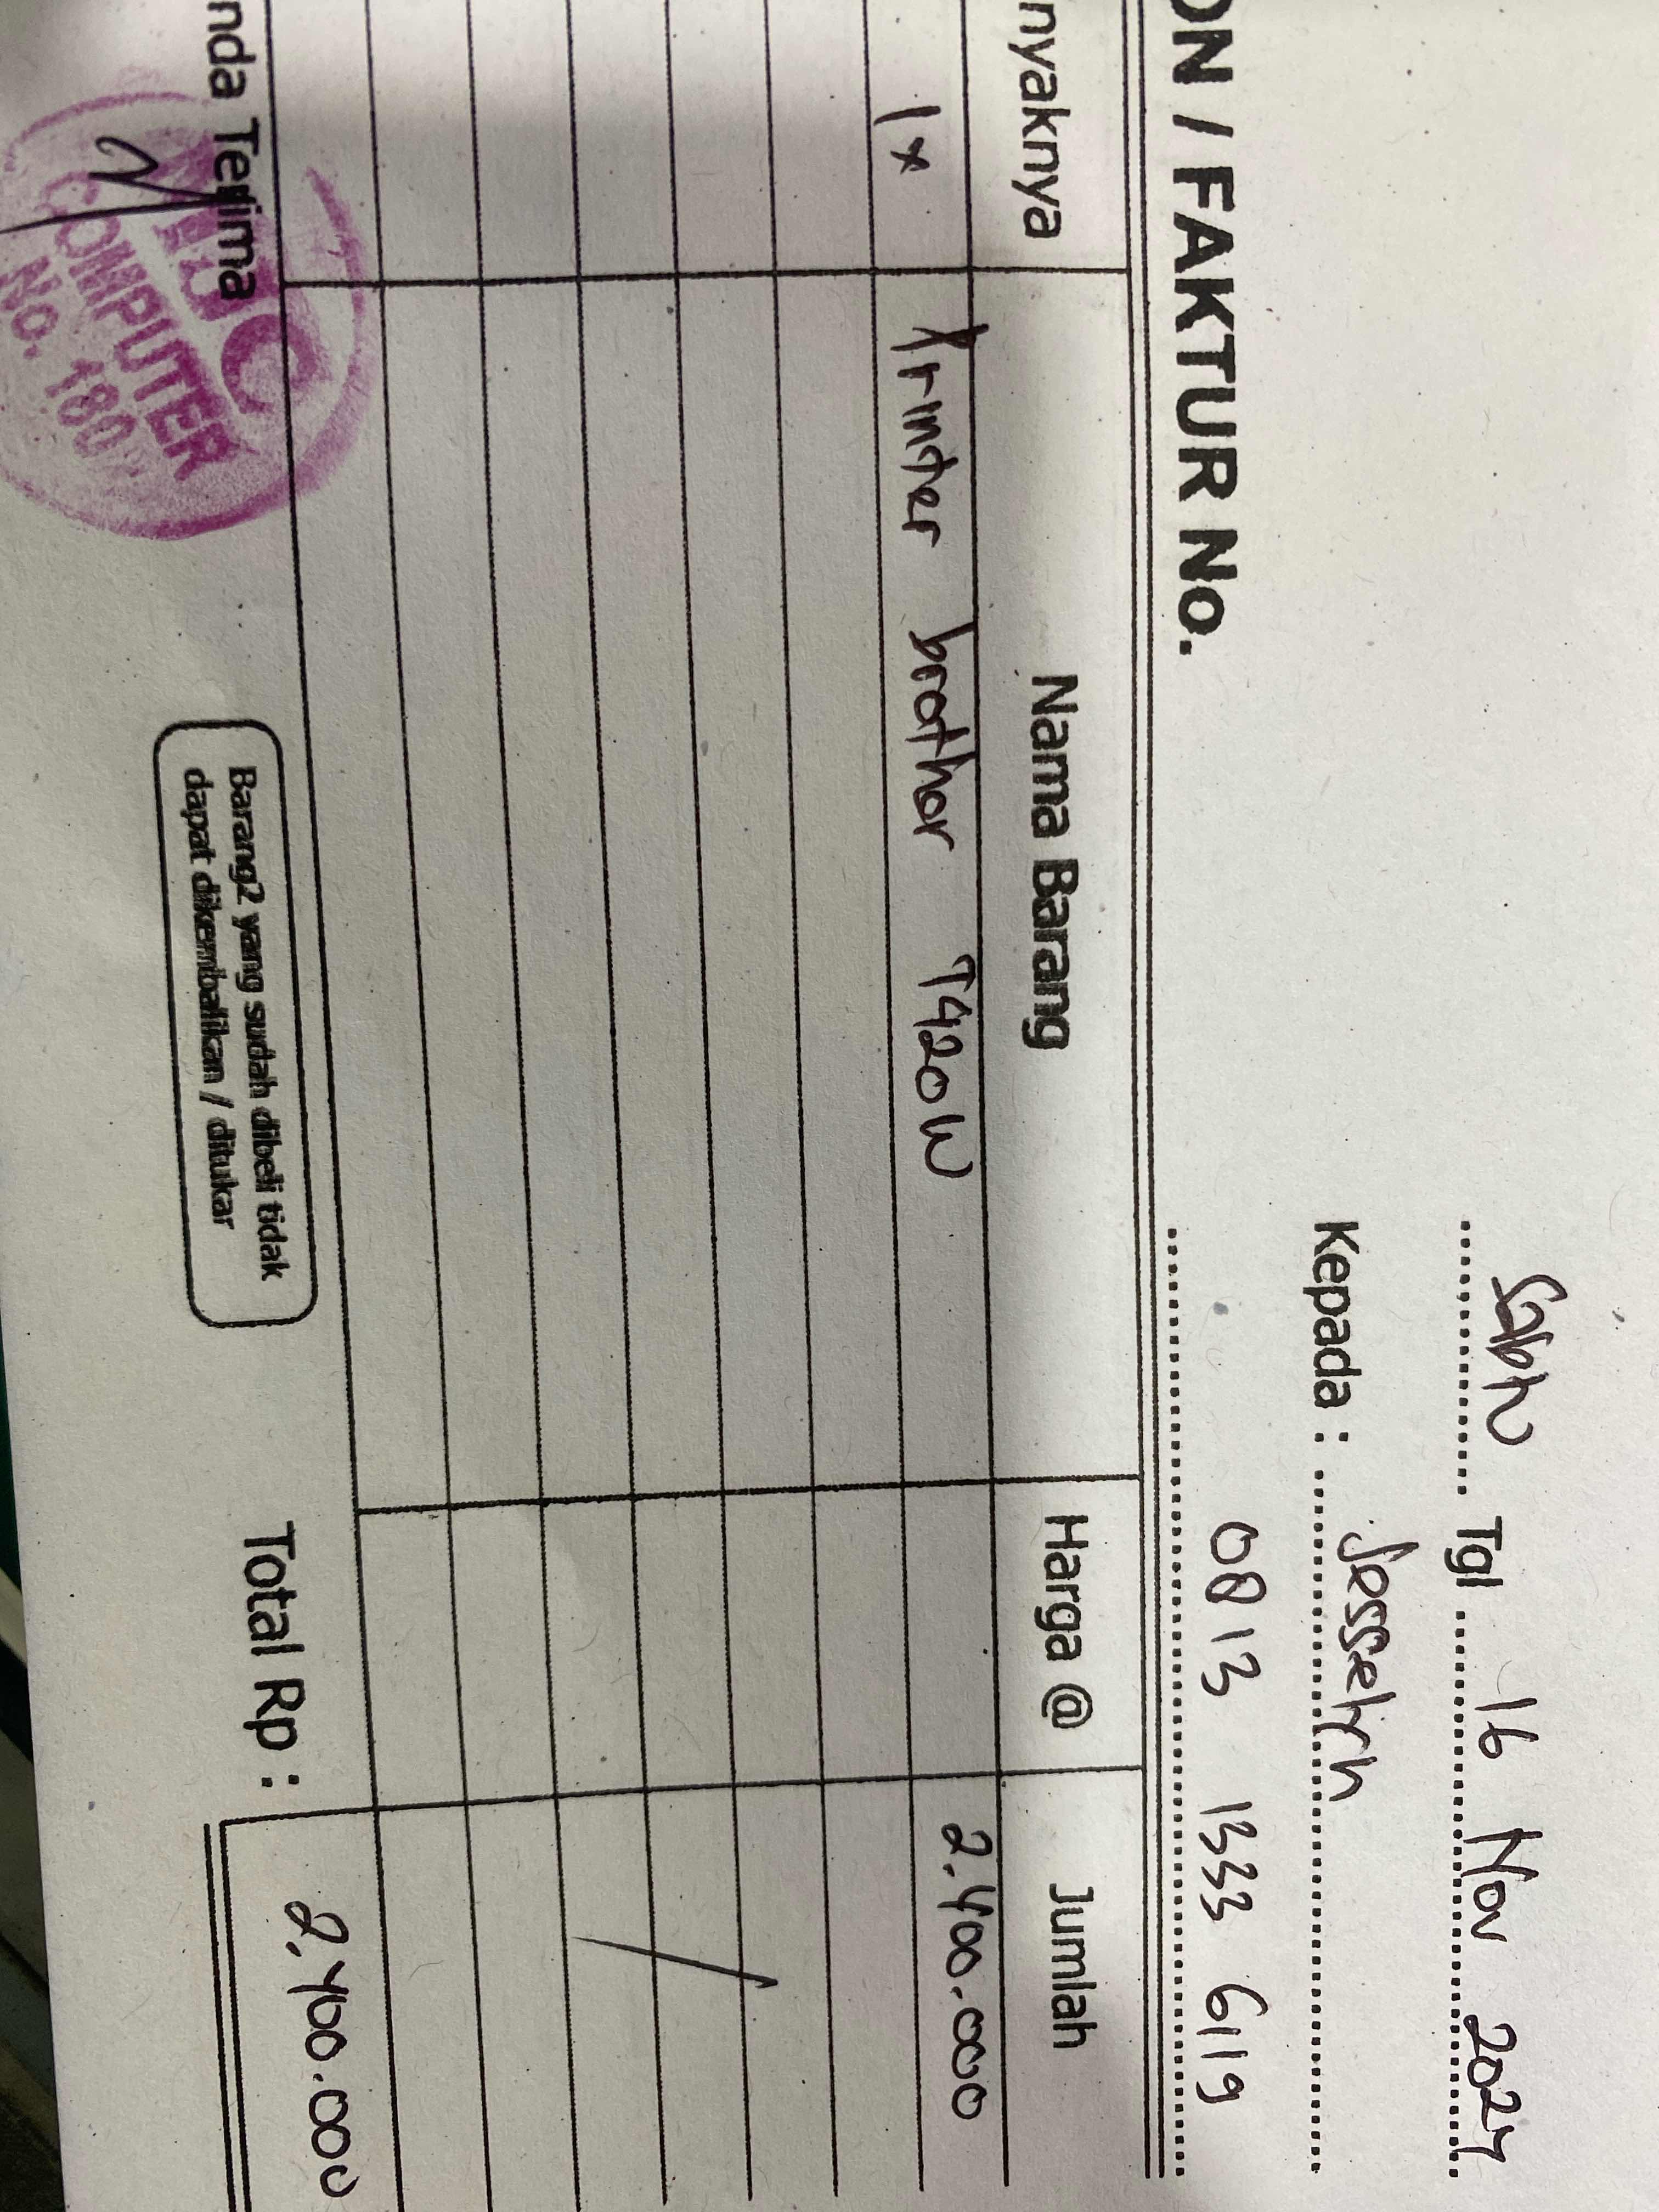 Sabtu Tgl 16 Nov 2024
Kepada : Jesselyn
ON / FAKTUR No. 0813 1333 6119
nyaknya Nama Barang Harga @ Jumlah
1x Printer brother T420W 2.400.000
nda Terima
COMPUTER
No. 180
Barang2 yang sudah dibeli tidak
dapat dikembalikan / ditukar
Total Rp : 2.400.000